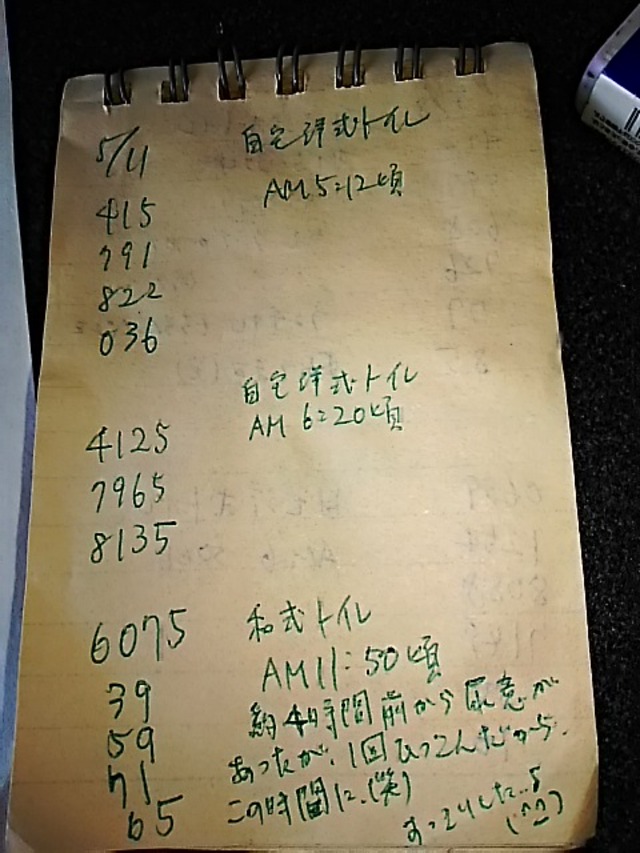 5/11 自宅洋式トイレ
AM5:12頃
415
791
822
036
自宅洋式トイレ
AM 6:20頃
4125
7965
8135
6075 和式トイレ
AM11:50頃
39 約4時間前から尿意が
59 あったが、1回ひっこんだから
71 この時間に、(笑)
65 すっきりした
(^^)